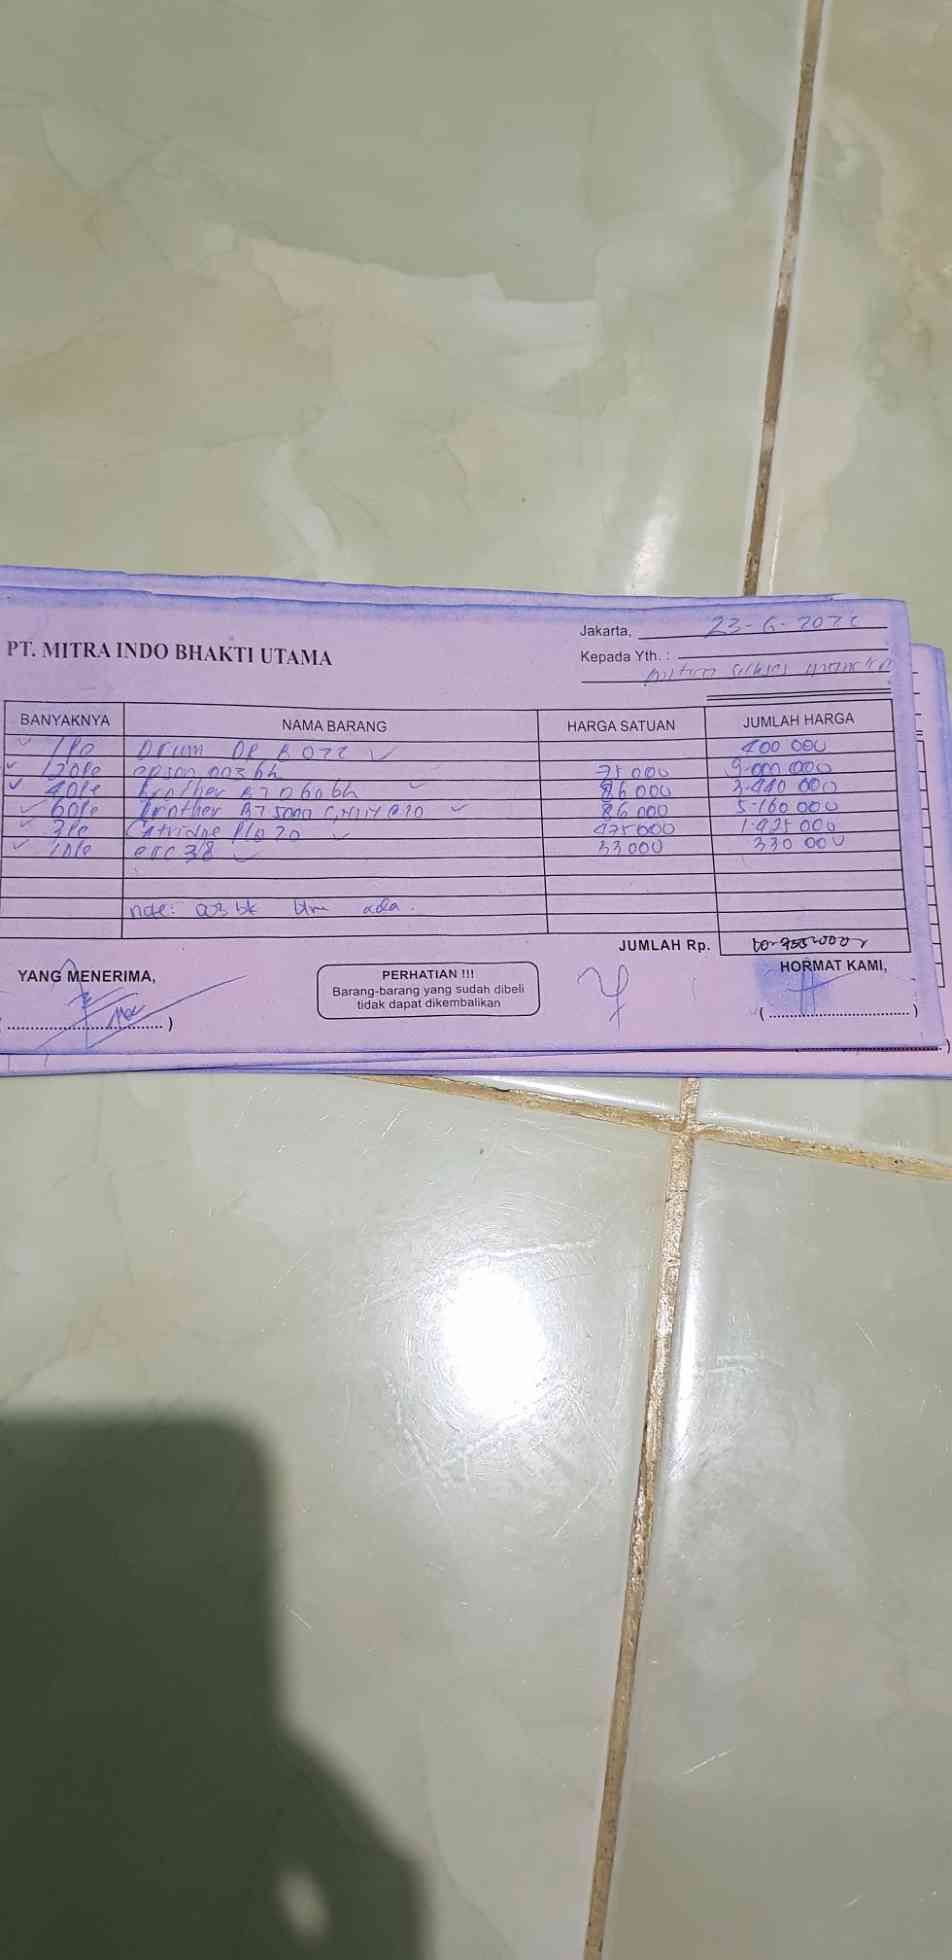 Jakarta, 23-6-2022
PT. MITRA INDO BHAKTI UTAMA
Kepada Yth. :
mitra sukses
BANYAKNYA NAMA BARANG HARGA SATUAN JUMLAH HARGA
1 Pc Drum DP B022 400 000
120 Pc epson 003 bk 75 000 9.000.000
40 Pc brother 6060 bk 86 000 3.440 000
60 Pc brother BT 5000 C,M,Y 86 000 5.160 000
3 Pc Catridge 475 000 1.425 000
10 Pc erc 38 33 000 330 000
note: 03 bk blm ada.
JUMLAH Rp.
YANG MENERIMA,
PERHATIAN !!!
Barang-barang yang sudah dibeli
tidak dapat dikembalikan
HORMAT KAMI,